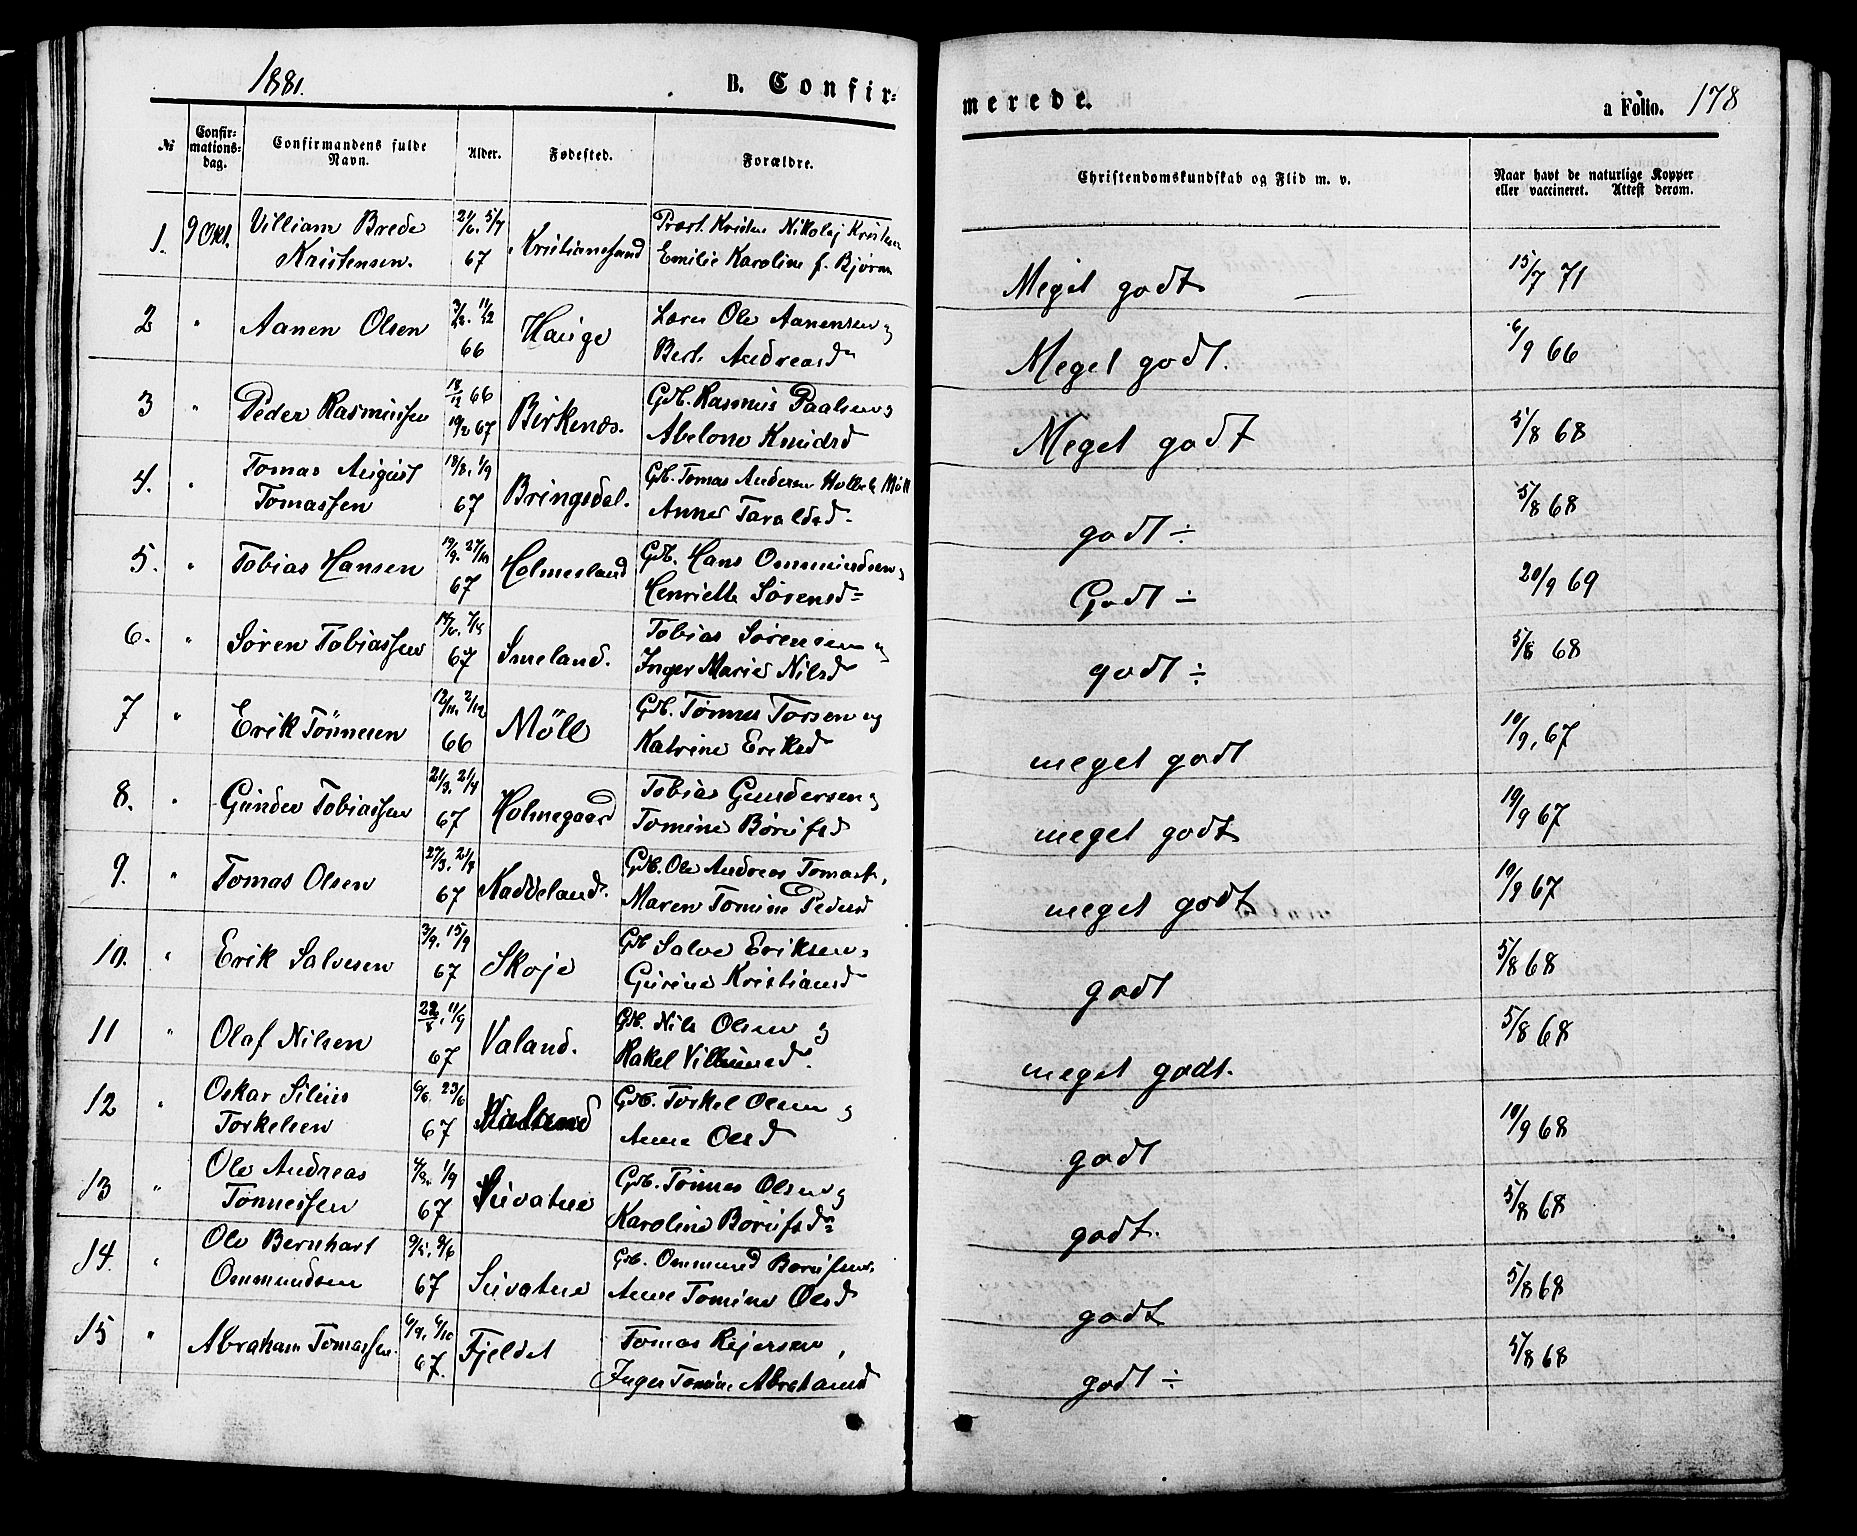 1881.
B. Confir-
merede.
a Folio. 178
№
Confir-
mations-
dag.
Confirmandens fulde
Navn.
Alder.
Fødested.
Forældre.
Christendomskundskab og Flid m. v.
Naar havt de naturlige Kopper
eller vaccineret. Attest derom.
1. 9 Okt. Villiam Brede
Kristensen.
67
Kristianssand
Præst. Kristen Nikolaj Kristen
Emilie Karoline f. Bjørn
Meget godt
15/7 71
2 " Aanen Olsen
66
Hauge
Lærer Ole Aanensen og
Berte Andreasd
Meget godt.
6/9 66
3 " Peder Rasmussen
18/12 66
19/2 67
Birkenæs.
Gdb. Rasmus Paalsen og
Abelone Knudsd
Meget godt
5/8 68
4. " Tomas August
Tomassen
18/8. 1/9
67
Bringsdal.
Gdb. Tomas Andersen
Anne Taraldsd.
godt ÷
5/8 68
5. " Tobias Hansen
19/9. 27/10
67
Holmesland
Gdb. Hans Ommundsen og
Henriette Sørensd
Godt ÷
20/9 69
6. " Søren Tobiassen
67
Smeland.
Tobias Sørensen og
Inger Marie Nilsd
godt ÷
5/8 68
7 " Erik Tönnesen
12/11. 2/12
66
Möll
Gdb. Tönnes Torsen og
Katrine Eriksd
meget godt
10/9, 67
8. " Gunder Tobiassen
21/3. 21/4
67
Holmegaard
Tobias Gundersen og
Tomine Børufsd
meget godt
19/9 67
9. " Tomas Olsen
67
Kaddeland.
Gdb. Ole Andreas Tomas
Maren Tomine Pedersd
meget godt
10/9 67
10. " Erik Salvesen
3/9. 15/9
67
Skoje
Gdb Salve Eriksen
Gurine Kristiansd
godt
5/8 68
11 " Olaf Nilsen
22/8. 11/9
67
Valand.
Gdb. Nils Olsen og
Rakel Villumsd.
meget godt.
5/8 68
12 " Oskar Silius
Torkelsen
6/6. 23/6
67
Gdb. Torkel Olsen og
Anne Olsd
godt
10/9 68
13 " Ole Andreas
Tønnessen
67
Suvatne
Gdb. Tönnes Olsen og
Karoline Børufsd
godt.
5/8 68
14. " Ole Bernhart
Ommundsen
67
Suvatne
Gdb. Ommund Børufsen
Anne Tomine Olsd
godt
5/8 68
15 " Abraham Tomassen.
67.
Fjeldet
Tomas Rejersen,
Inger Tomine Abrahamsd
godt ÷
5/8 68